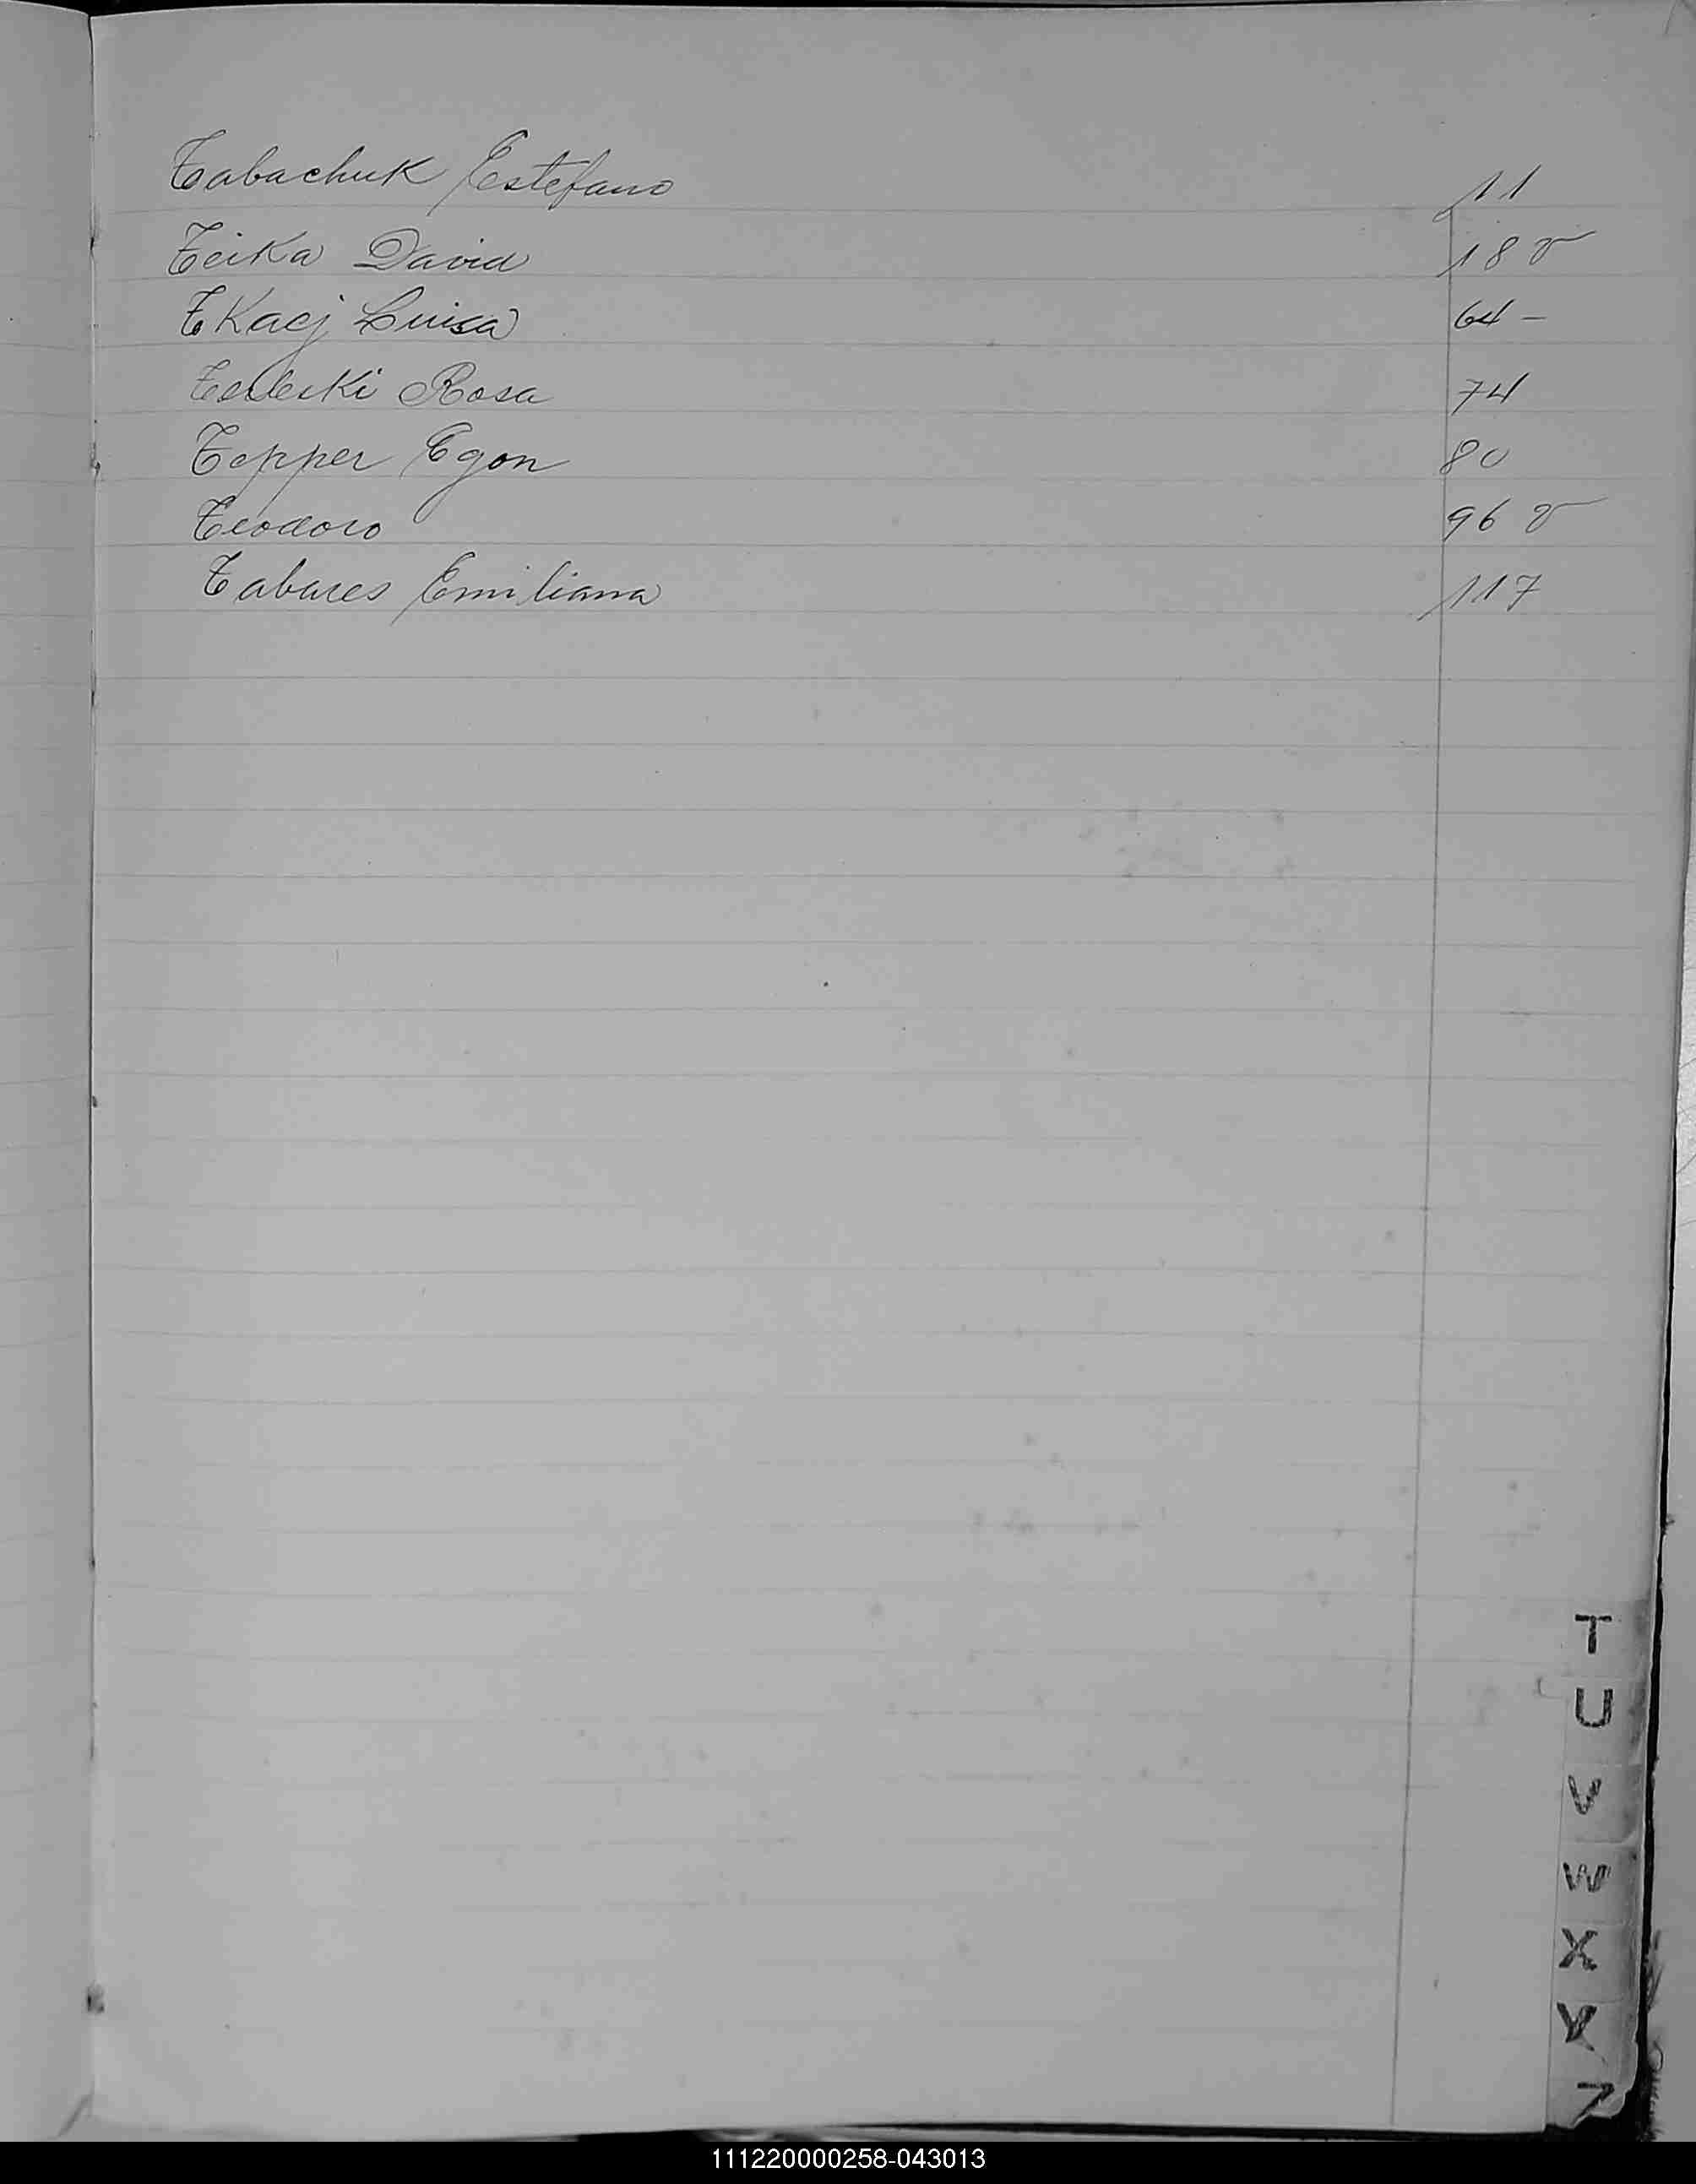 Tabachuk Estefano 11
Teika David 18 v
TKacj Luisa 64 -
Rosa 74
Tepper Egon 80
Teodoro 96 v
Tabares Emiliana 117
T
U
V
W
X
Y
Z
111220000258-043013